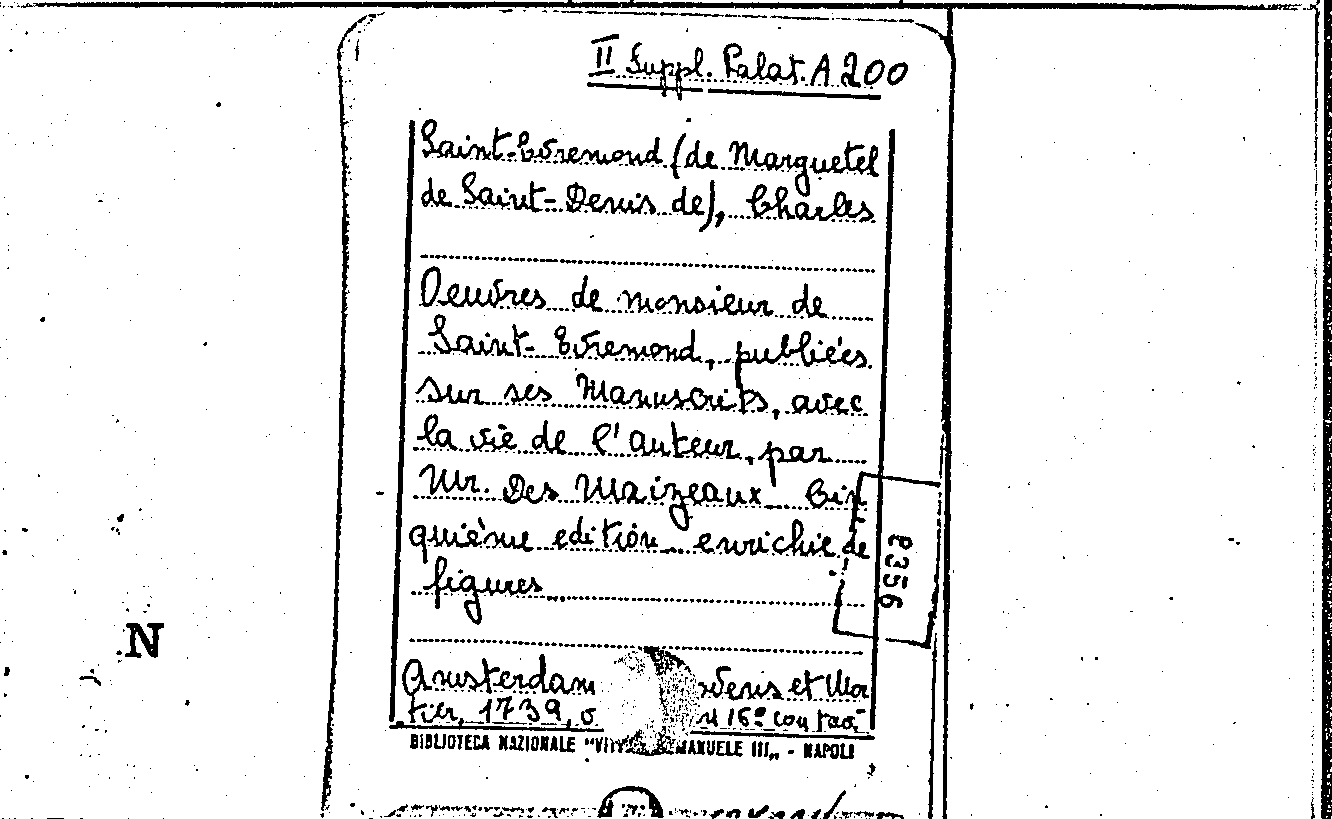 II Suppl. Palat. A 200
Saint-Evremond (de Marguetel
de Saint-Denis de), Charles
Oeuvres de monsieur de
Saint-Evremond, publiées
sur ses Manuscrits, avec
la vie de l'auteur, par
Mr. Des Maizeaux Cin
quième edition enrichie de
figures
8356
N
Amsterdam et Mor
tier, 1739, in 16º con tav.
BIBLIOTECA NAZIONALE "VITT EMANUELE III„ - NAPOLI